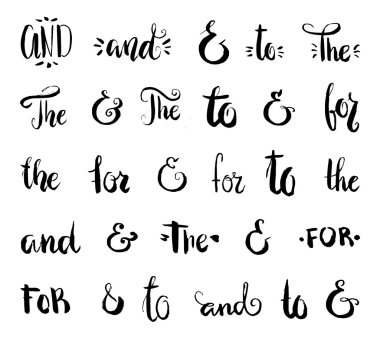 AND and & to The
The & The to & for
the for & for to the
and & The & FOR
FOR & to and to &